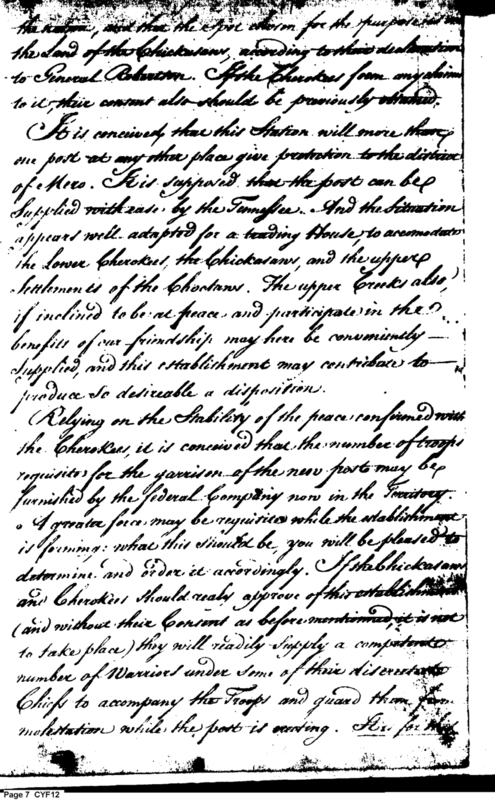 the nation, and that the spot chosen for the purpose is in
the Land of the Chickasaws, according to their declaration
to General Robertson. If the Cherokees form any claims
to it, their consent also should be previously obtained.
It is conceived that this Station will more than
one post at any other place give protection to the district
of Mero. It is supposed that the post can be
supplied with ease by the Tennessee. And the situation
appears well adapted for a trading House, to accomodate
the Lower Cherokees, the Chickasaws, and the upper
settlements of the Choctaws. The upper Creeks also,
if inclined to be at peace and participate in the
benefits of our friendship may here be conveniently
supplied, and this establishment may contribute to
produce so desireable a disposition.
Relying on the Stability of the peace confirmed with
the Cherokees, it is conceived that the number of troops
requisite for the garrison of the new post may be
furnished by the federal Company now in the Territory.
A greater force may be requisite while the establishment
is forming: what this should be, you will be pleased to
determine and order it accordingly. If the Chickasaws
and Cherokees should realy approve of this establishment
(and without their Consent as before mentioned it is not
to take place) they will readily supply a competent
number of Warriors under some of their discreetest
Chiefs to accompany the Troops and guard them from
molestation while the post is erecting. It is for this
Page 7 CYF12